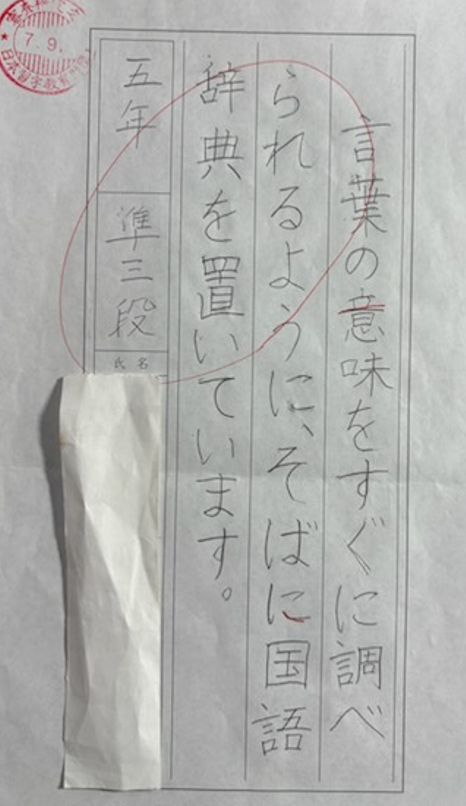 言葉の意味をすぐに調べ
られるように、そばに国語
辞典を置いています。
五年
準三段
氏名
7.9.